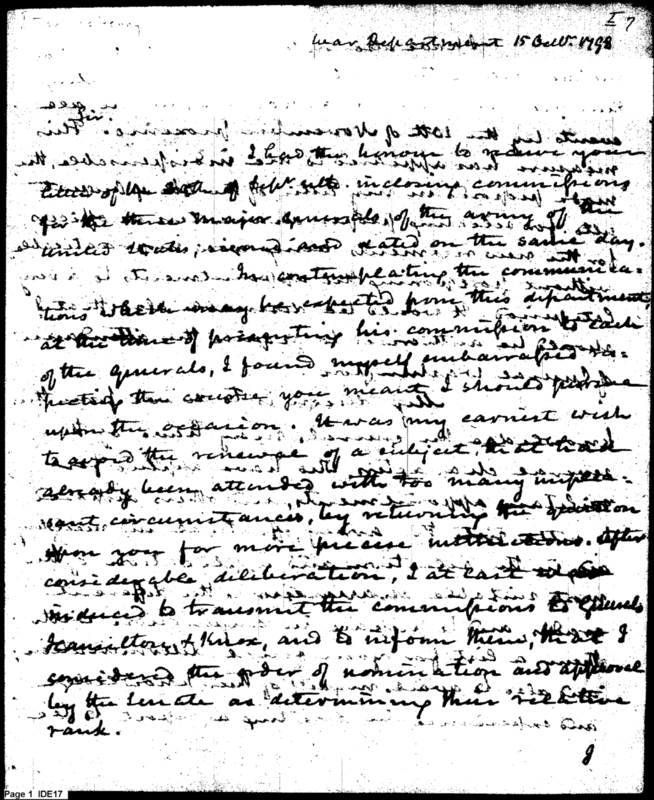 I 7
War Department 15 Octr. 1798
Sir.
I had the honour to receive your
letter of the of Sepr. ulto. inclosing commissions
for the three major Generals of the army of the
United States, signed and dated on the same day.
In contemplating the communica-
tions which may be expected from this department,
at the time of presenting his commission to each
of the generals, I found myself embarrassed res-
pecting the course you meant I should pursue
upon the occasion. It was my earnest wish
to avoid the renewal of a subject, that had
already been attended with too many unplea-
sant circumstances, by returning the question
upon you for more precise instructions. After
considerable deliberation, I at last
induced to transmit the commissions to Generals
Hamilton & Knox, and to inform them, that I
considered the order of nomination and approval
by the Senate as determining their relative
rank.
I
Page 1 IDE17